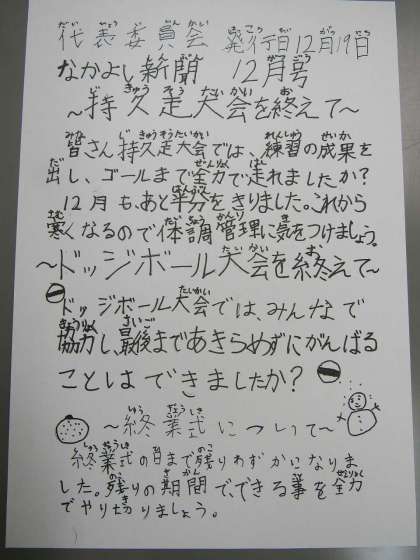 代表委員会 発行日12月19日
なかよし新聞 12月号
～持久走大会を終えて～
皆さん持久走大会では、練習の成果を
出し、ゴールまで全力で走れましたか?
12月も、あと半分をきりました。これから
寒くなるので体調管理に気をつけましょう。
～ドッジボール大会を終えて～
ドッジボール大会では、みんなで
協力し、最後まであきらめずにがんばる
ことはできましたか?
～終業式について～
終業式の日まで残りわずかになりま
した。残りの期間で、できる事を全力
でやり切りましょう。